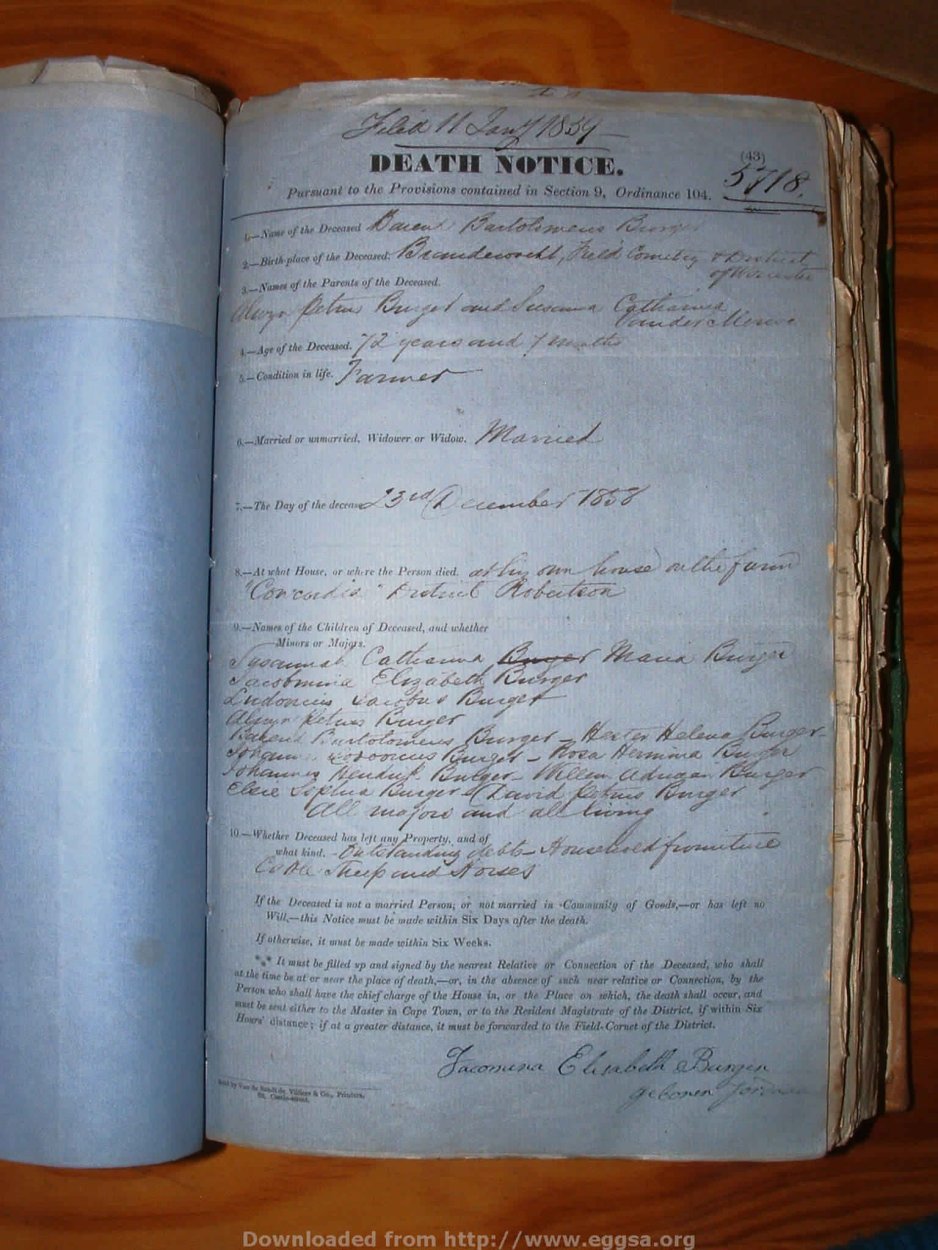 Filed 11 Jany 1859
DEATH NOTICE.
(43)
5718.
Pursuant to the Provisions contained in Section 9, Ordinance 104.
1.—Name of the Deceased Barend Bartolomeus Burger
2.—Birth-place of the Deceased. Field Cornetcy & District
of Worcester
3.—Names of the Parents of the Deceased.
Alwyn Petrus Burger and Susanna Catharina
van der Merwe
4.—Age of the Deceased. 72 years and 7 months
5.—Condition in life. Farmer
6.—Married or unmarried, Widower or Widow. Married
7.—The Day of the decease 23rd December 1858
8.—At what House, or where the Person died. at his own house on the farm
"Concordia" District Robertson
9.—Names of the Children of Deceased, and whether
Minors or Majors.
Susannah Catharina Burger Maria Burger
Jacobmina Elizabeth Burger
Ludovicus Jacobus Burger
Alwyn Petrus Burger
Barend Bartolomeus Burger - Hester Helena Burger
Burger - Rosa Hermina Burger
Johannes Hendrik Burger - Willem Adriaan Burger
Elsie Sophia Burger & David Petrus Burger
All majors and all living
10.—Whether Deceased has left any Property, and of
what kind. - Outstanding debts - Household furniture
Cattle Sheep and Horses
If the Deceased is not a married Person, or not married in Community of Goods,—or has left no
Will,—this Notice must be made within Six Days after the death.
If otherwise, it must be made within Six Weeks.
*** It must be filled up and signed by the nearest Relative or Connection of the Deceased, who shall
at the time be at or near the place of death,—or, in the absence of such near relative or Connection, by the
Person who shall have the chief charge of the House in, or the Place on which, the death shall occur, and
must be sent either to the Master in Cape Town, or to the Resident Magistrate of the District, if within Six
Hours' distance; if at a greater distance, it must be forwarded to the Field-Cornet of the District.
Jacomina Elisabeth Burger
geboren
Sold by Van de Sandt de Villiers & Co., Printers,
Castle-street.
Downloaded from http://www.eggsa.org